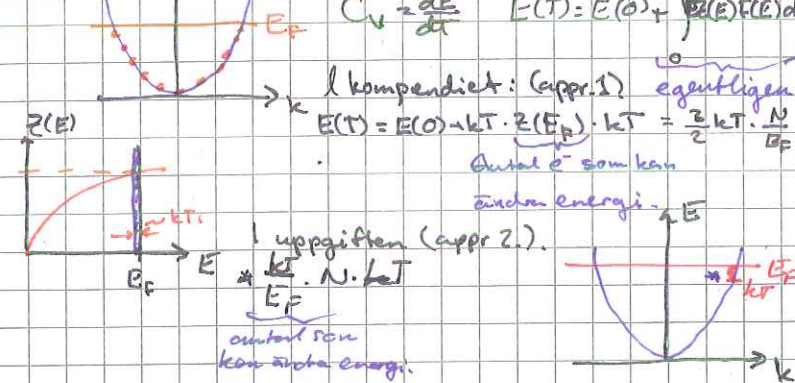 E_F
C_V = dE/dT    E(T) = E(0) +
k
I kompendiet: (appr. 1)    egentligen
Z(E)
E(T) = E(0) + kT · Z(E_F) · kT = 3/2 kT · N/E_F
Antal e⁻ som kan
ändra energi.
~kT
E_F    E
I uppgiften (appr 2.).
* kT/E_F · N · kT
antal som
kan ändra energi.
E
* kT    E_F
k